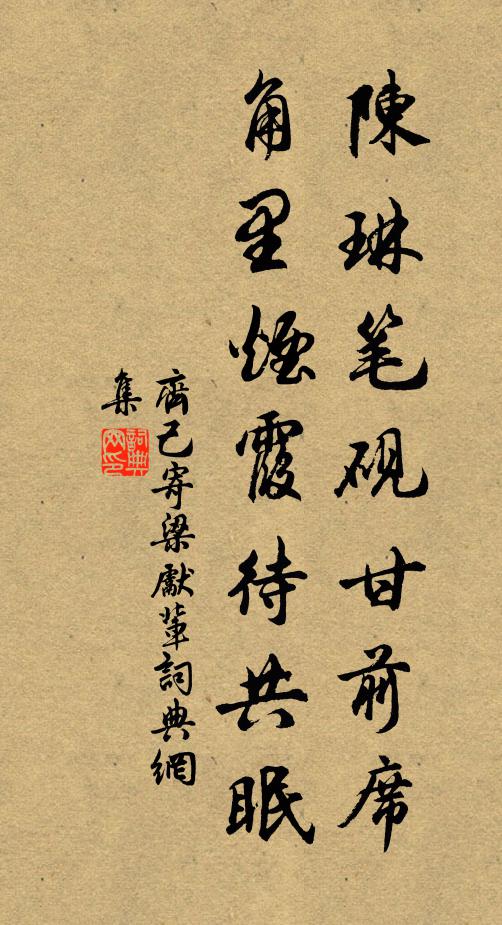 陳琳笔硯甘前席
角里煙霞待共眠
齊己寄梁獻輩詞典網
集
詞典
网印